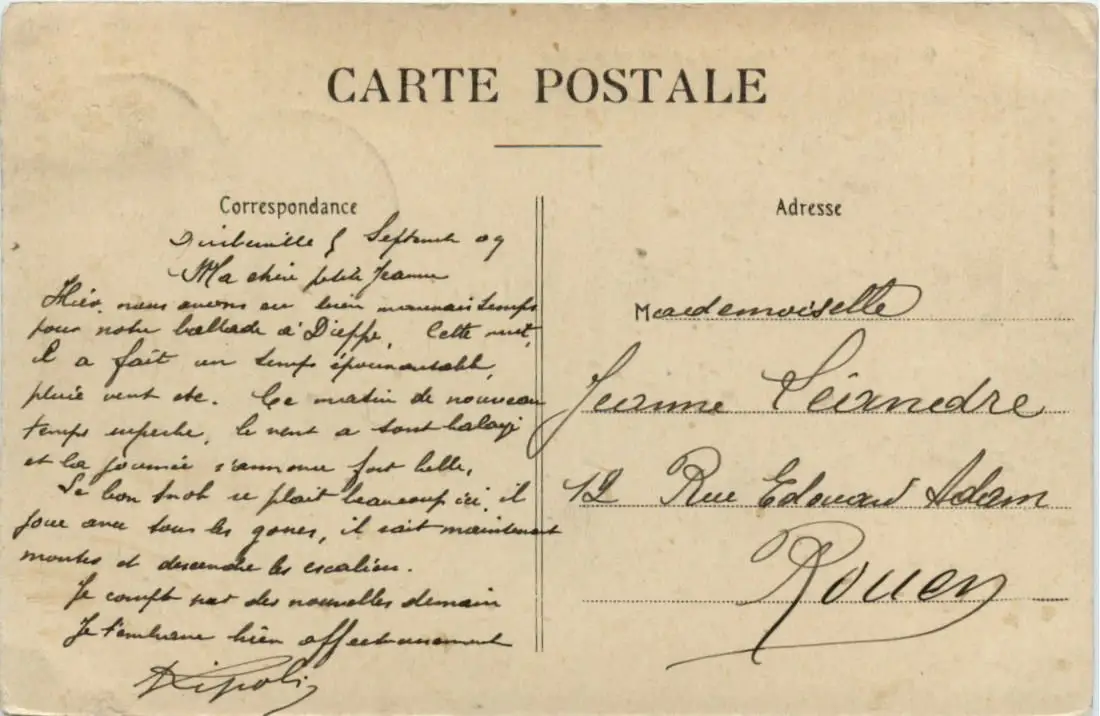 CARTE POSTALE
Correspondance
Adresse
5 Septembre 09
Ma chère petite Jeanne
Hier, nous avons eu bien mauvais temps
pour notre ballade à Dieppe. Cette nuit,
il a fait un temps épouvantable,
pluie vent etc. Ce matin de nouveau
temps superbe, le vent a tout balayé
et la journée s'annonce fort belle.
Le bon se plait beaucoup ici, il
joue avec tous les gones, il sait maintenant
monter et descendre les escaliers.
Je compte sur des nouvelles demain
Je t'embrasse bien affectueusement
Mademoiselle
Jeanne Léandre
12 Rue Edouard Adam
Rouen